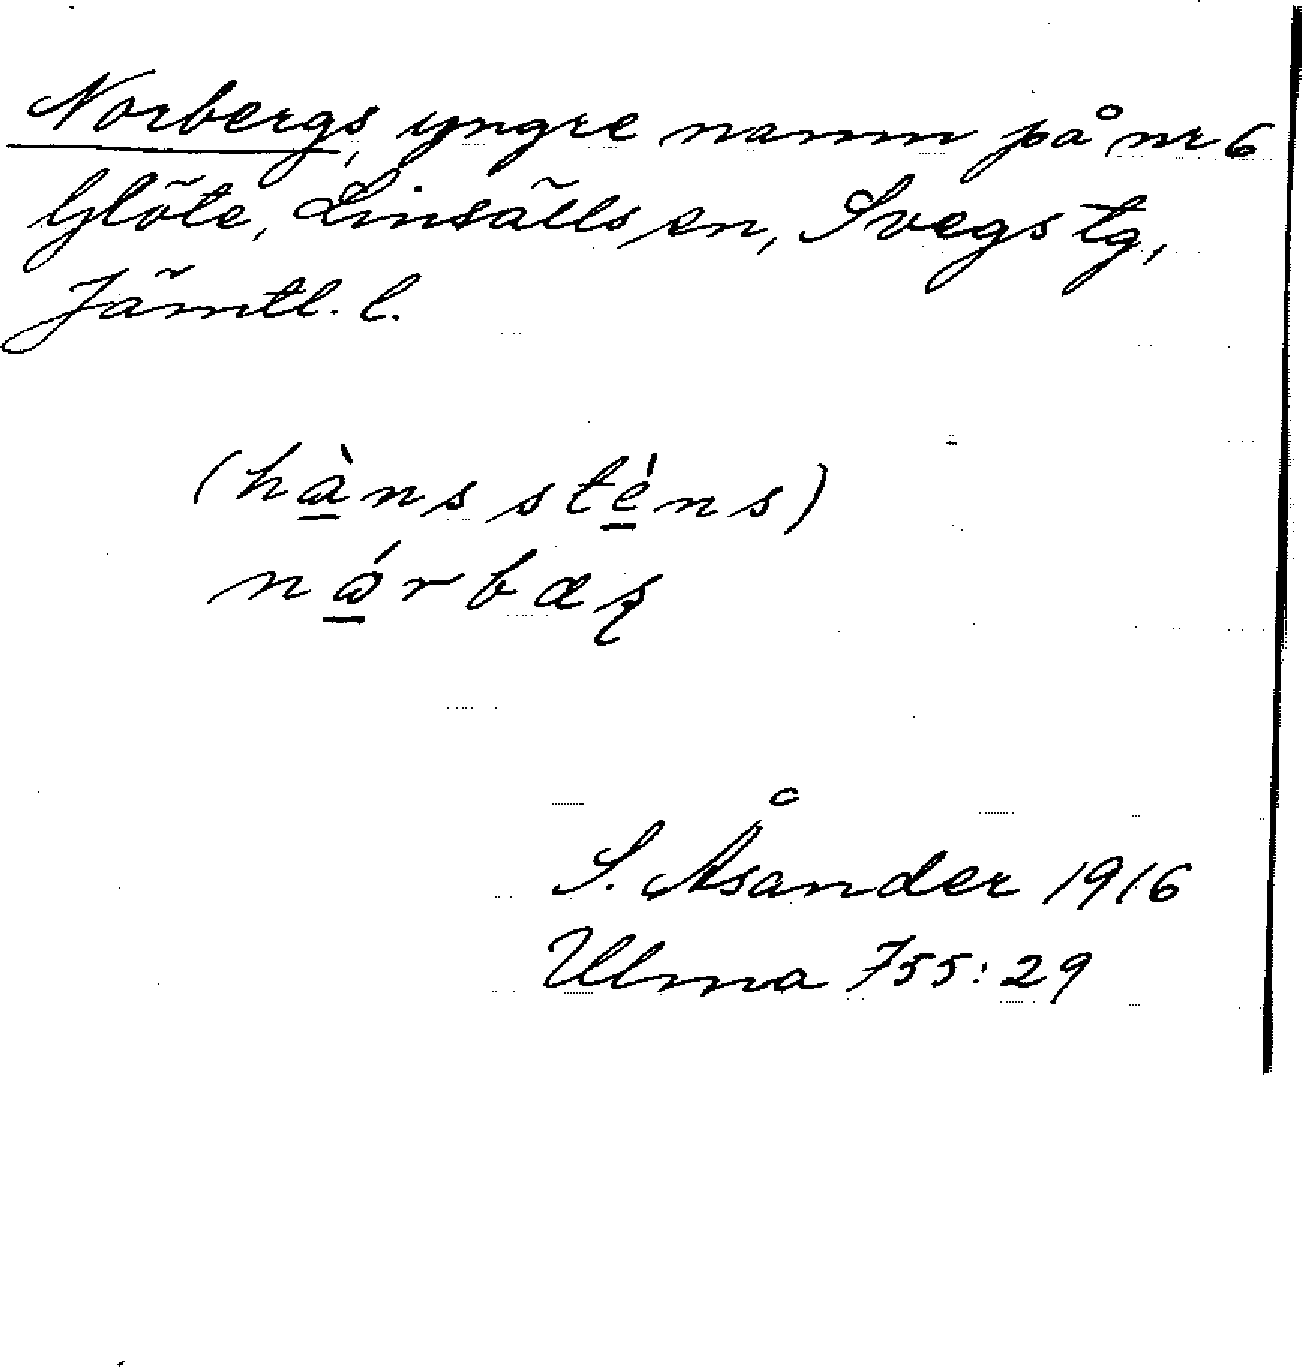 Norbergs, yngre namn på nr 6
Glöte, Linsälls sn, Svegs tg,
Jämtl. l.
(hàns sténs)
nǻrbæʂ
S. Åsander 1916
Ulma 755:29